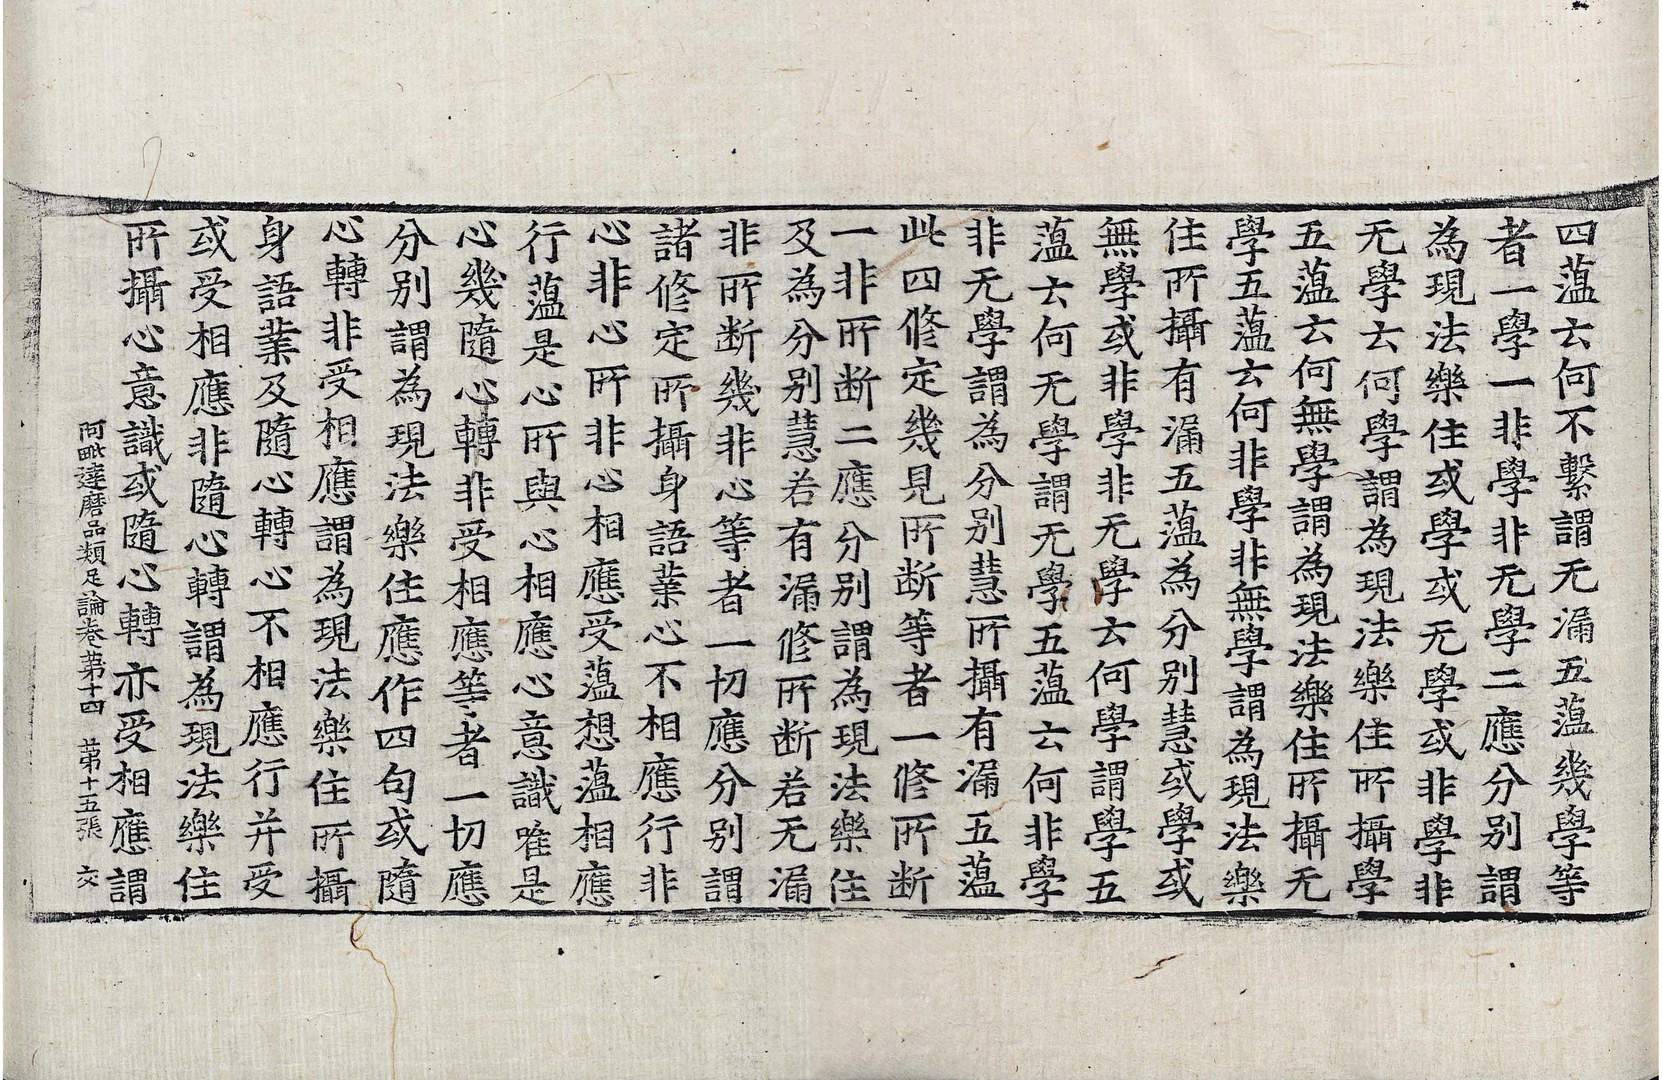 四薀云何不繫謂无漏五薀幾學等
者一學一非學非无學二應分別謂
為現法樂住或學或无學或非學非
无學云何學謂為現法樂住所攝學
五薀云何無學謂為現法樂住所攝无
學五薀云何非學非無學謂為現法樂
住所攝有漏五薀為分別慧或學或
無學或非學非无學云何學謂學五
薀云何无學謂无學五薀云何非學
非无學謂為分別慧所攝有漏五薀
此四修定幾見所断等者一修所断
一非所断二應分別謂為現法樂住
及為分別慧若有漏修所断若无漏
非所断幾非心等者一切應分別謂
諸修定所攝身語業心不相應行非
心非心所非心相應受薀想薀相應
行薀是心所與心相應心意識唯是
心幾隨心轉非受相應等者一切應
分別謂為現法樂住應作四句或隨
心轉非受相應謂為現法樂住所攝
身語業及隨心轉心不相應行并受
或受相應非隨心轉謂為現法樂住
所攝心意識或隨心轉亦受相應謂
阿毗達磨品類足論卷第十四 第十五張 交